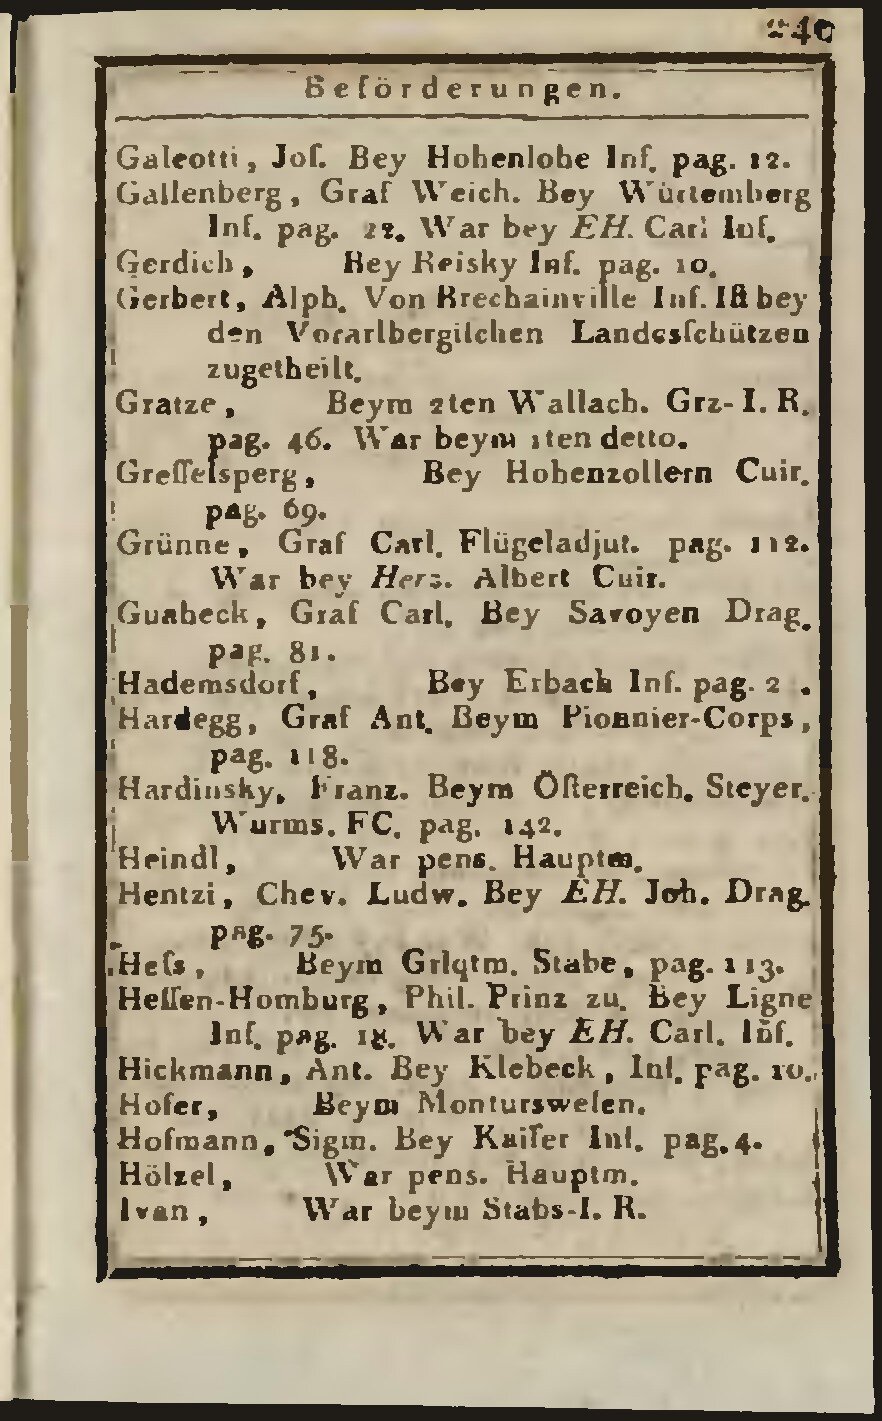 240
Beförderungen.
Galeotti, Joſ. Bey Hohenlohe Inf. pag. 12.
Gallenberg, Graf Weich. Bey Würtemberg
Inf. pag. 22. War bey EH. Carl Inf.
Gerdich, Bey Reisky Inf. pag. 10.
Gerbert, Alph. Von Brechainville Inf. Iſt bey
den Vorarlbergiſchen Landesſchützen
zugetheilt.
Gratze, Beym 2ten Wallach. Grz-I. R.
pag. 46. War beym 1ten detto.
Greſſelsperg, Bey Hohenzollern Cuir.
pag. 69.
Grünne, Graf Carl. Flügeladjut. pag. 112.
War bey Herz. Albert Cuir.
Guabeck, Graf Carl. Bey Savoyen Drag.
pag. 81.
Hademsdorf, Bey Erbach Inf. pag. 2 .
Hardegg, Graf Ant. Beym Pionnier-Corps,
pag. 118.
Hardinsky, Franz. Beym Öſterreich. Steyer.
Wurms. FC. pag. 142.
Heindl, War pens. Hauptm.
Hentzi, Chev. Ludw. Bey EH. Joh. Drag.
pag. 75.
Heſs, Beym Grlqtm. Stabe, pag. 113.
Heſſen-Homburg, Phil. Prinz zu. Bey Ligne
Inf. pag. 18. War bey EH. Carl. Inf.
Hickmann, Ant. Bey Klebeck, Inf. pag. 10.
Hofer, Beym Monturswefen.
Hofmann, Sigm. Bey Kaiſer Inf. pag. 4.
Hölzel, War pens. Hauptm.
Ivan, War beym Stabs-I. R.